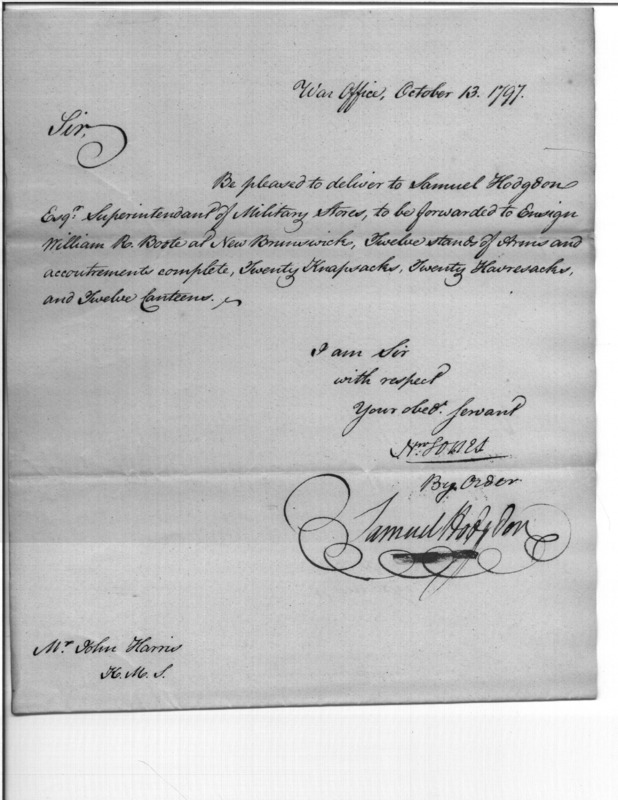 War Office, October 13. 1797.
Sir,
Be pleased to deliver to Samuel Hodgdon
Esqr. Superintendant of Military Stores, to be forwarded to Ensign
William R. Boote at New Brunswick, Twelve stands of Arms and
accoutrements complete, Twenty Knapsacks, Twenty Havresacks,
and Twelve Canteens.
I am Sir
with respect
Your obedt. servant
Wm Jones
By Order
Samuel Hodgdon
Mr. John Harris
K.M.S.